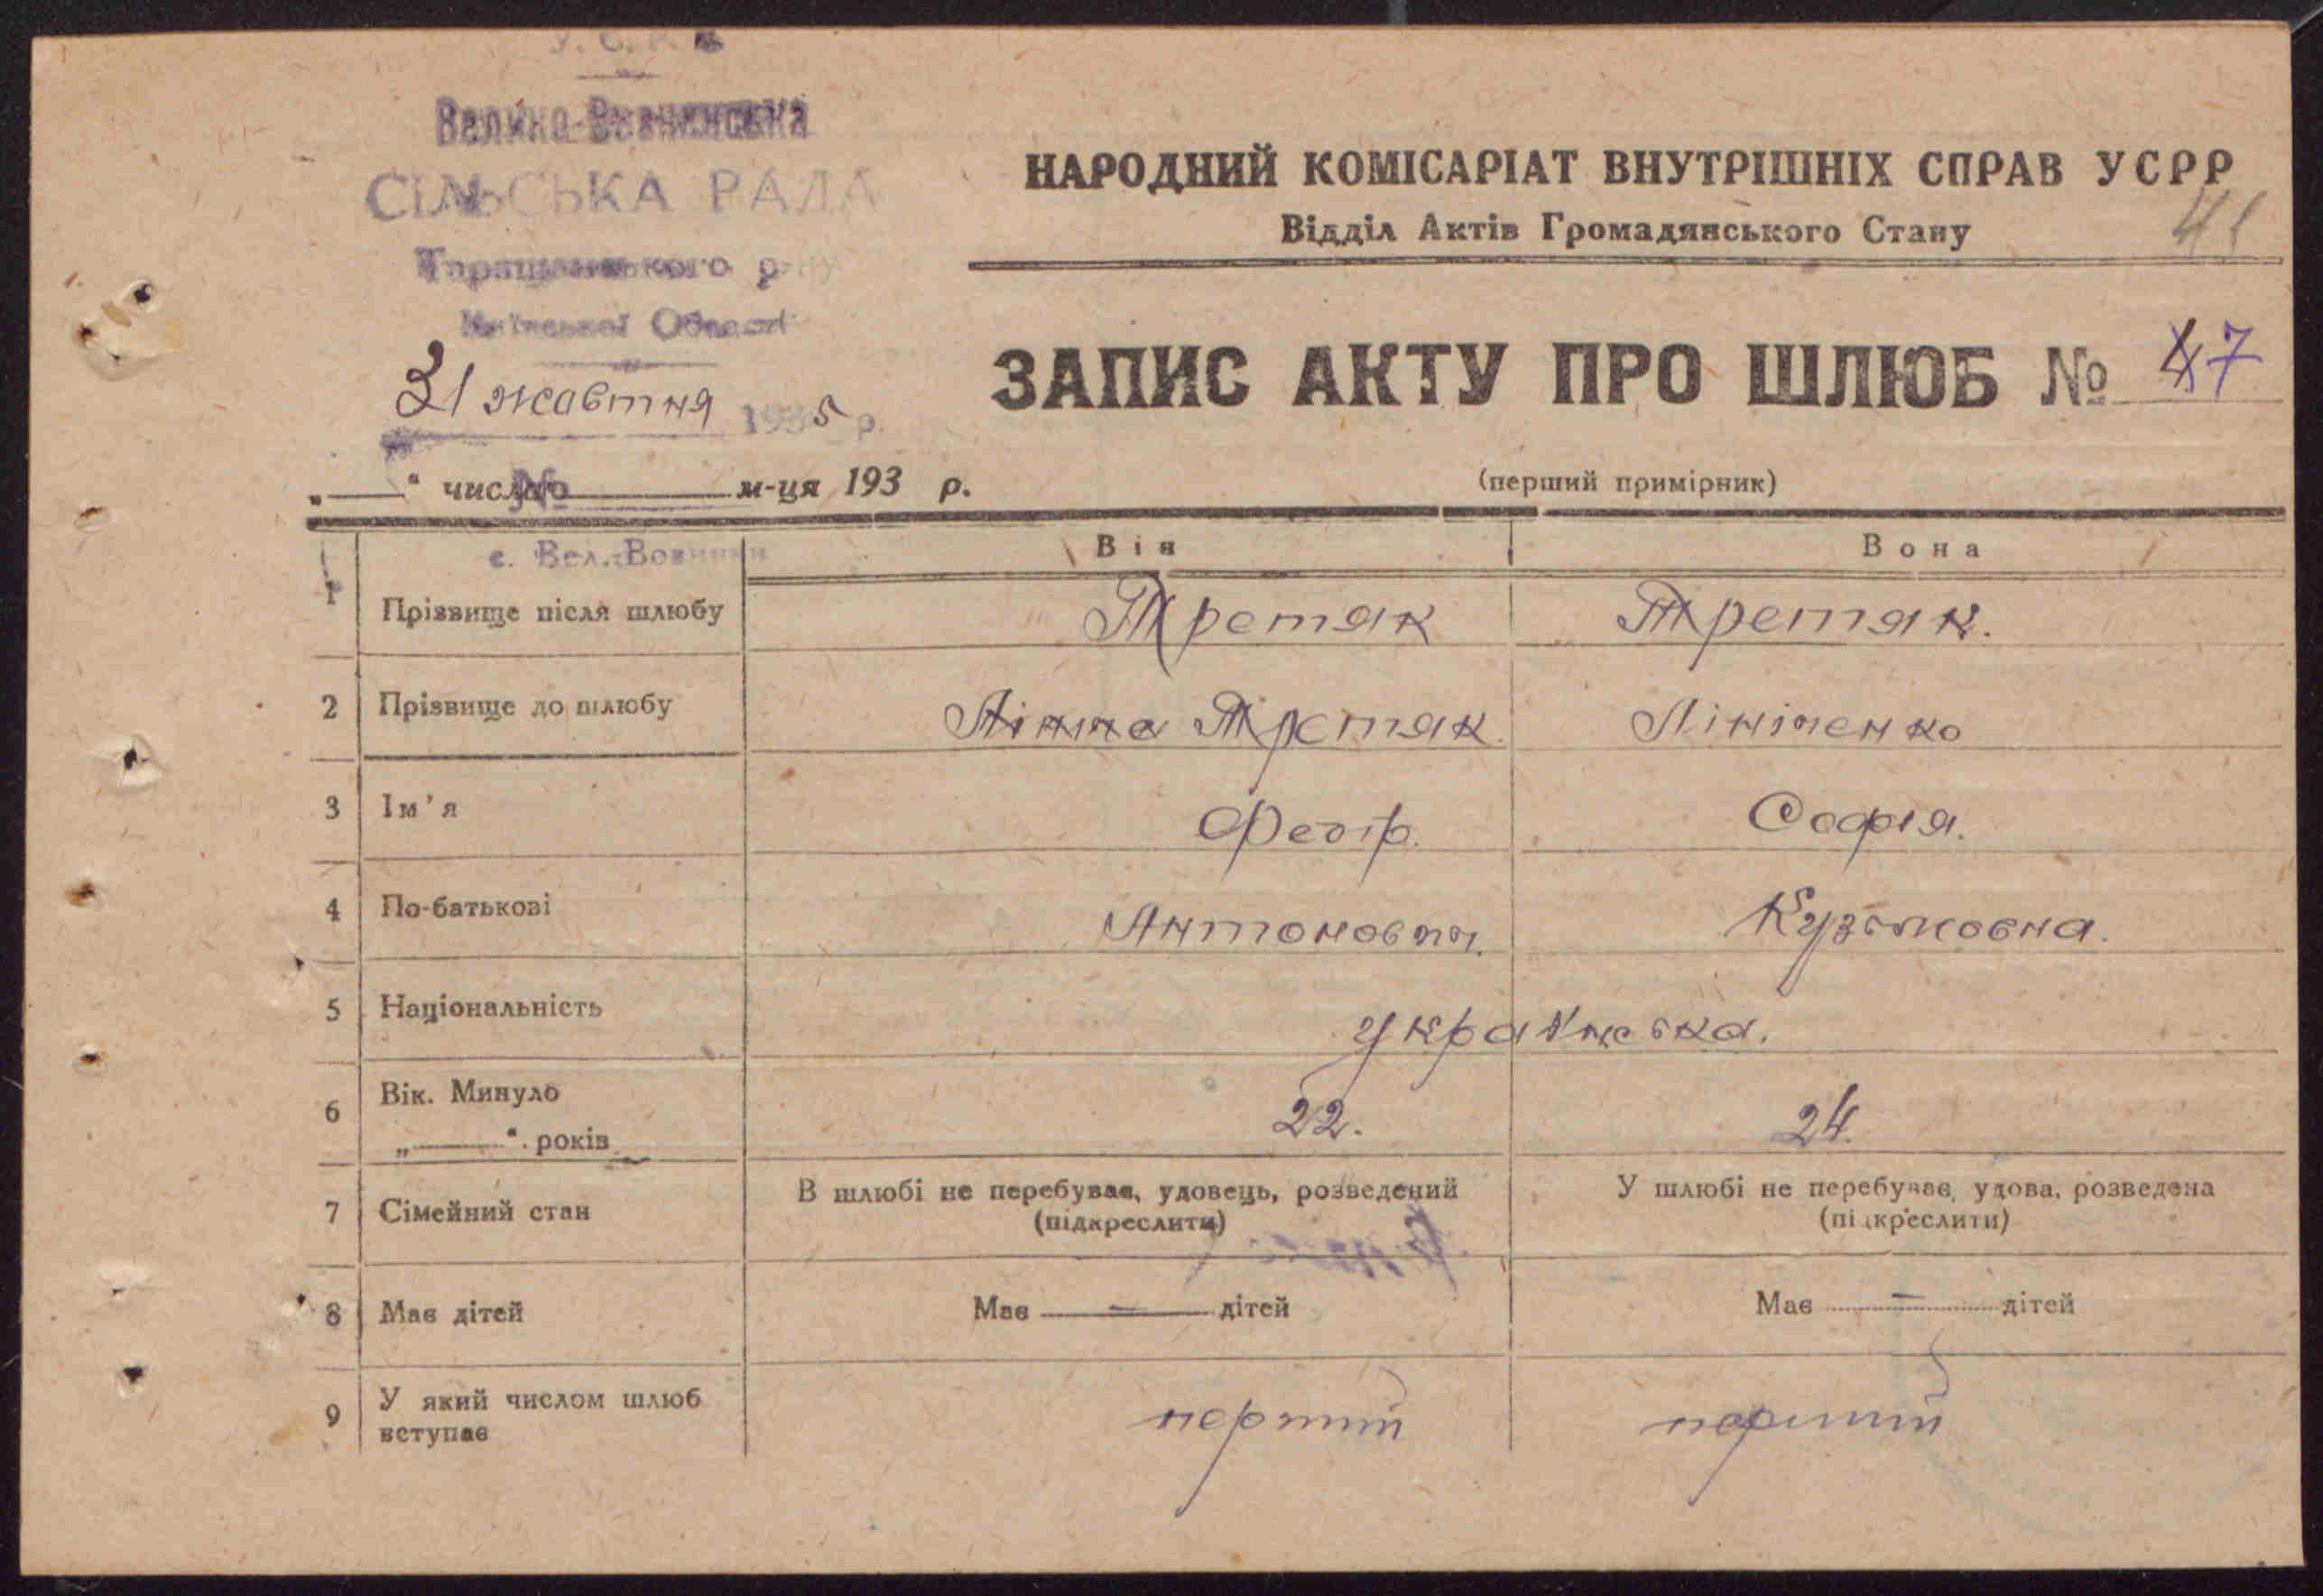 У. С. Р. Р.
Велико-Вовнянська
СІЛЬСЬКА РАДА
Таращанського р-ну
Київської Області
31 жовтня 1935 р.
№
„ “ числа м-ця 193 р.
с. Вел.-Вовнянка
НАРОДНИЙ КОМІСАРІАТ ВНУТРІШНІХ СПРАВ УСРР
Відділ Актів Громадянського Стану
41
ЗАПИС АКТУ ПРО ШЛЮБ № 47
(перший примірник)
Він Вона
1 Прізвище після шлюбу Третяк Третяк.
2 Прізвище до шлюбу Третяк. Лініченко
3 Ім’я Федір. Софія.
4 По-батькові Антонович. Кузьмовна.
5 Національність українська.
6 Вік. Минуло „ “ років 22. 24.
7 Сімейний стан В шлюбі не перебуває, удовець, розведений (підкреслити) У шлюбі не перебуває, удова, розведена (підкреслити)
8 Має дітей Має — дітей Має — дітей
9 У який числом шлюб вступає перший перший